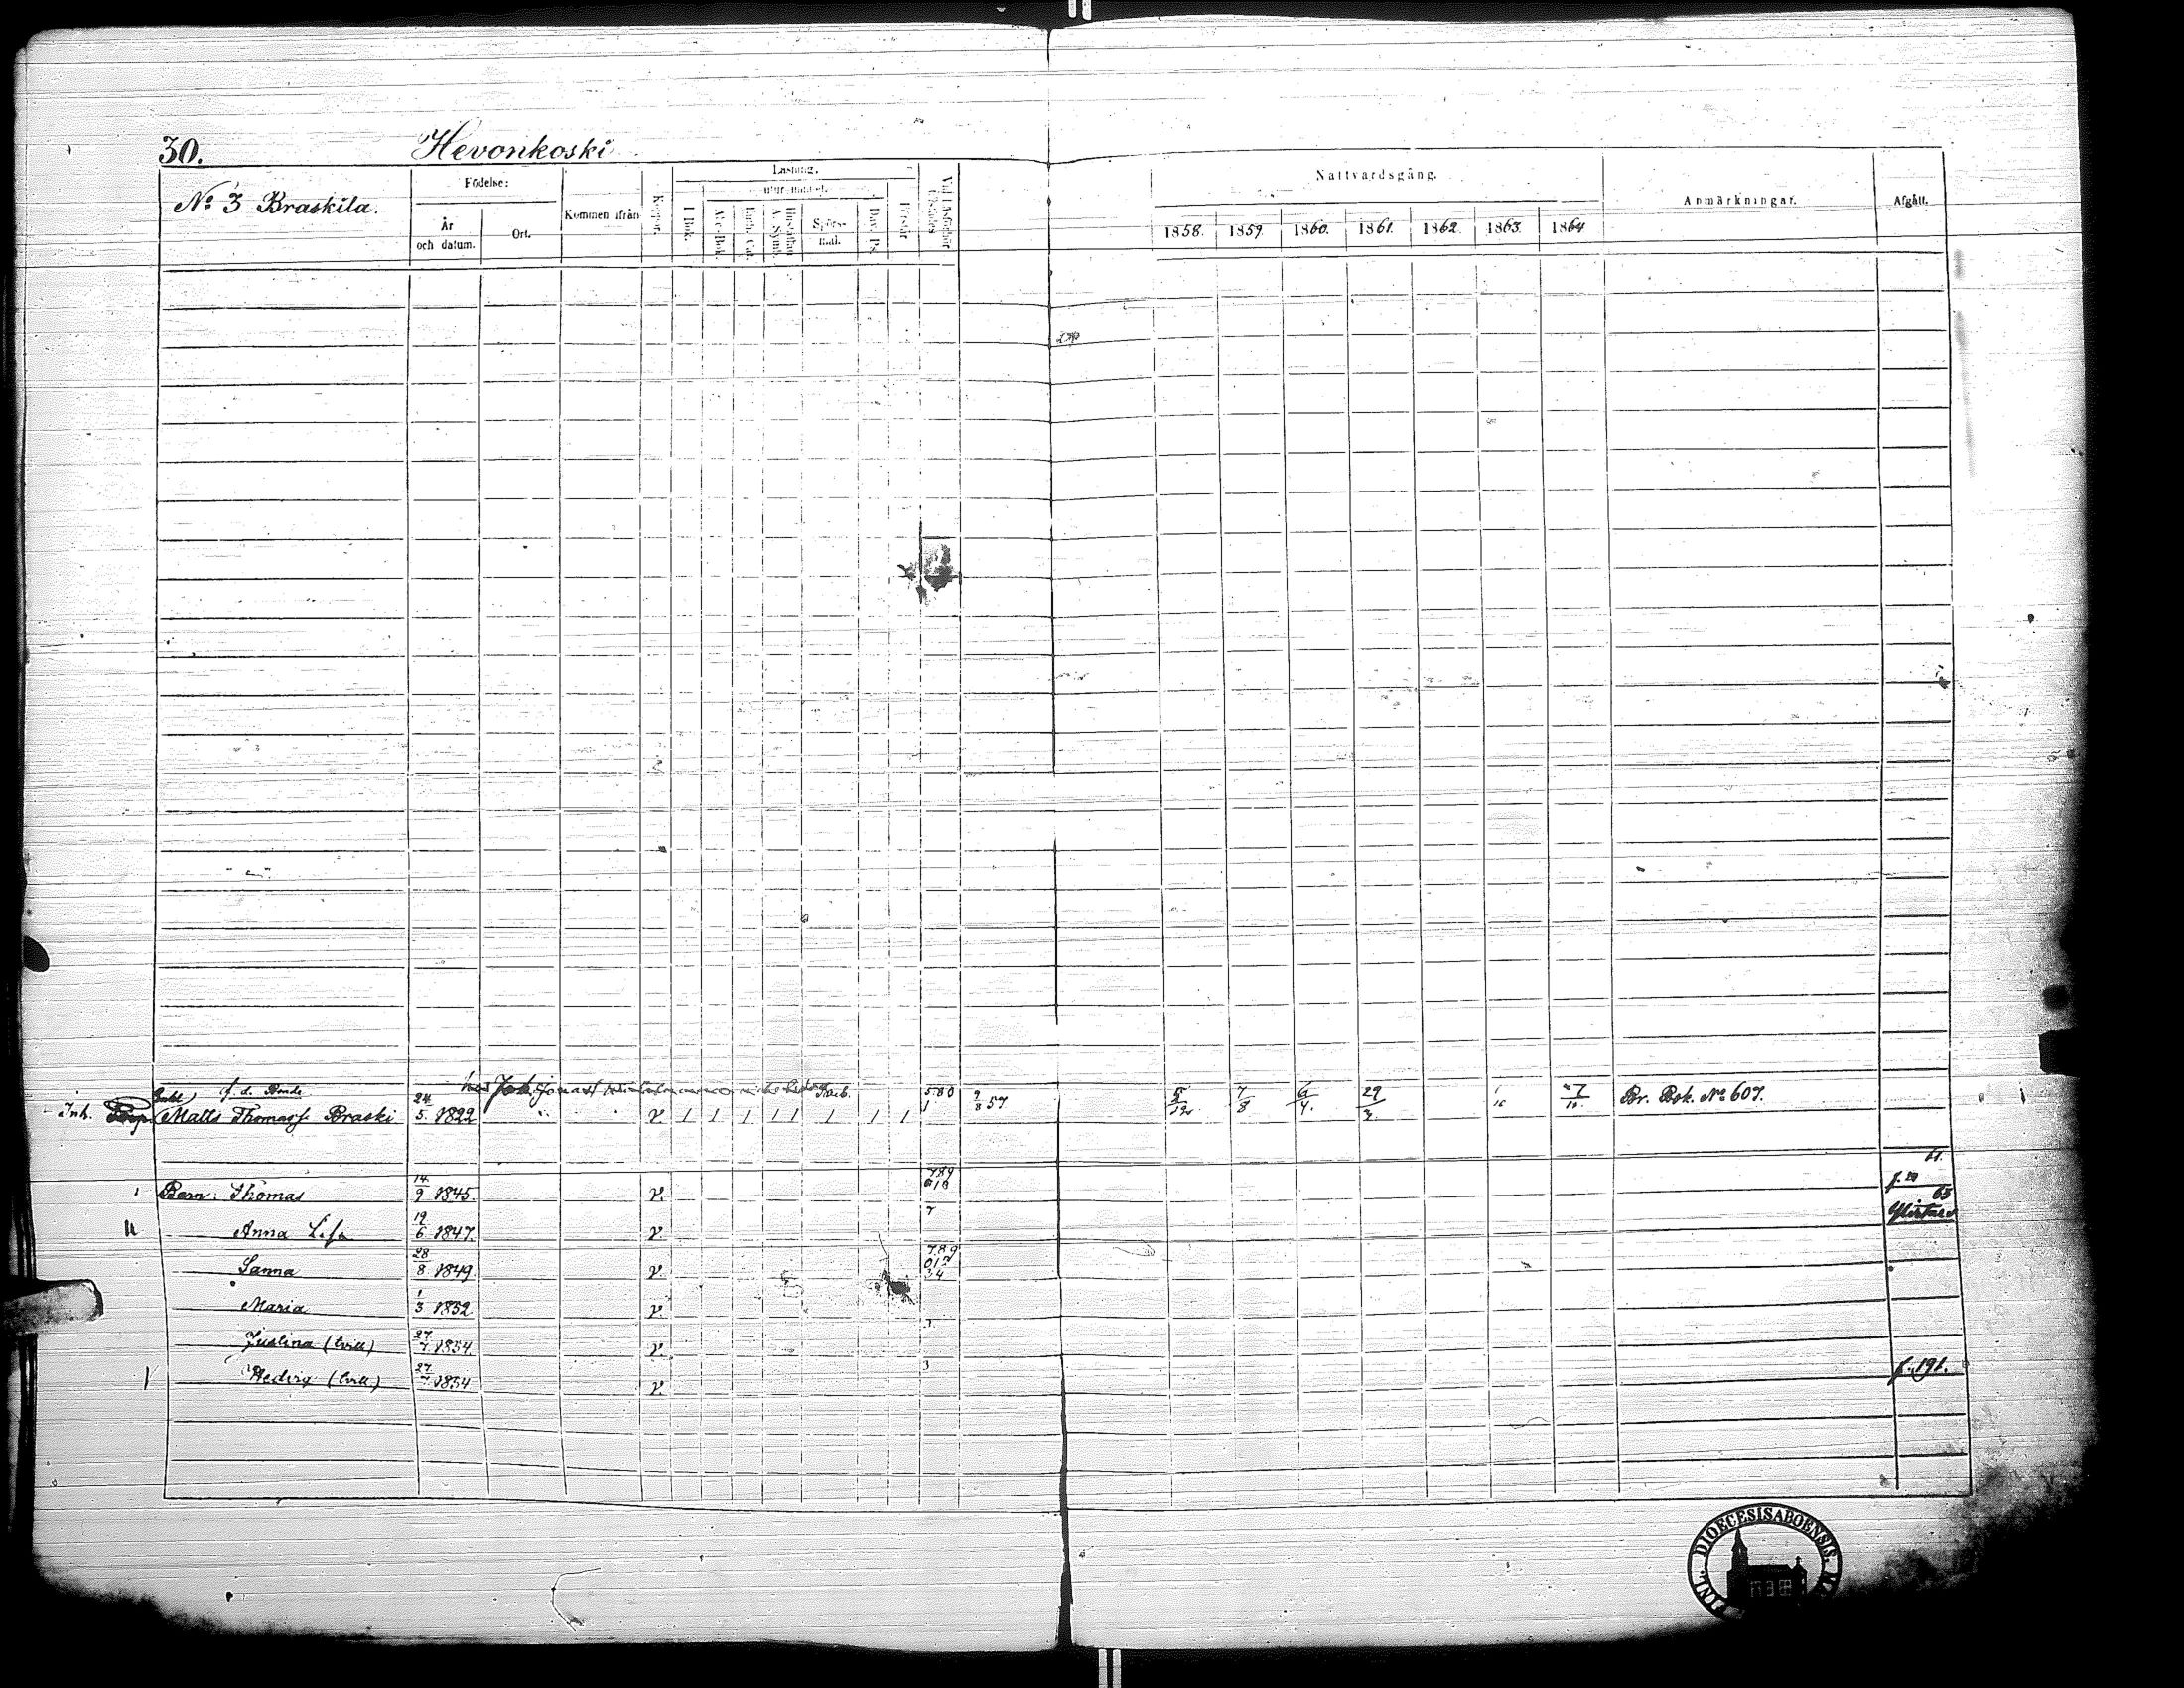 30. Hevonkoski
No 3 Braskila.
Födelse:
År och datum.
Ort.
Kommen ifrån
Koppor.
Läsning.
utur minnet.
I Bok.
Abc-Bok.
Luth. Cat.
Hustaflan A. Symb.
Spörsmål.
Dav. Ps.
Förstår
Vid Läsförhör
Nattvardsgång.
1858. 1859. 1860. 1861. 1862. 1863. 1864
Anmärkningar.
Afgått.
f. d. Bonde
Inh. Matts Thomass. Braski 24/5. 1822 v. 1 1 1 1 1 1 1 1 580 1 9/8 57 7/8 6/4. Br. Bok. No 607.
Barn: Thomas 14/9 1845. v. 789
Anna Lisa 19/6 1847. v. 7
Sanna 28/8 1849 v. 789 34
Maria 1/3 1852 v.
Justina (tvill) 27/7 1854. v.
Hedvig (tvill) 27/7 1854 v. 3 f. 191.
FINL. DIOECESIS ABOENSIS.